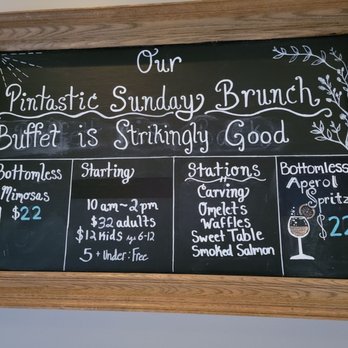 Our
Pintastic Sunday Brunch
Buffet is Strikingly Good
Bottomless
Mimosas
$22
Starting
10am-2pm
$32 adults
$12 Kids Age 6-12
5 + Under: Free
Stations
Carving
Omelets
Waffles
Sweet Table
Smoked Salmon
Bottomless
Aperol
Spritz
$22